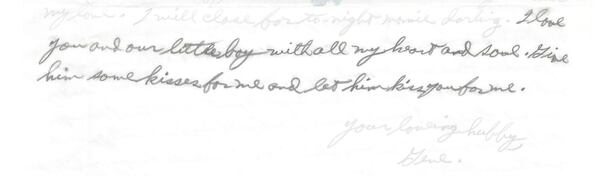 my love. I will close for to-night momie darling. I love
you and our little boy with all my heart and soul. Give
him some kisses for me and let him kiss you for me.
your loving hubby
Gene.